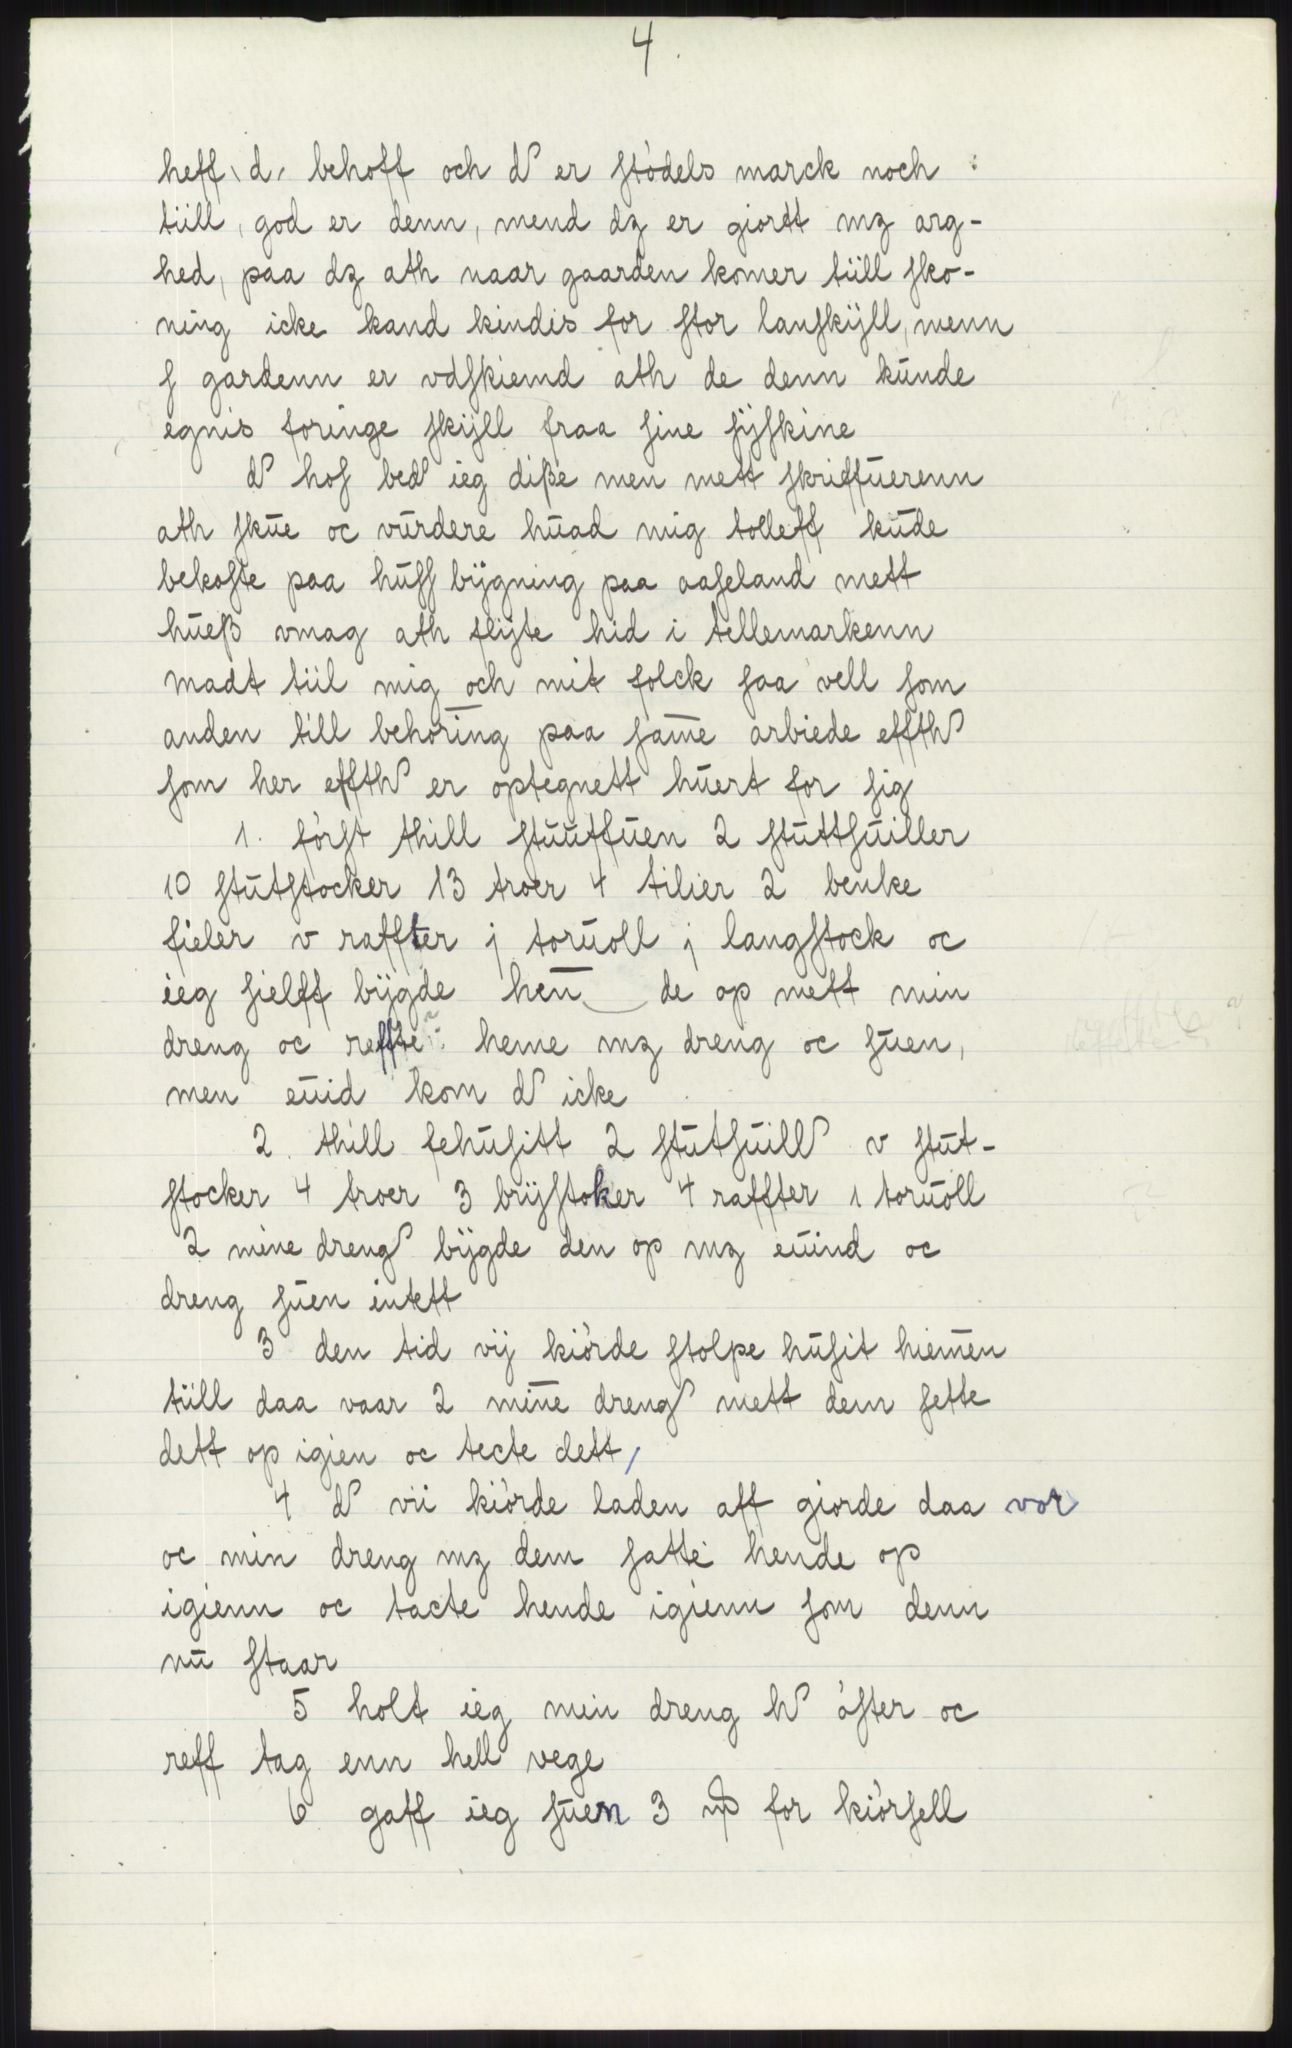 4.
heff, d, behoff och d er stödels marck noch :
tiill, god er denn, mend dz er giortt mz arg-
hed, paa dz ath naar gaarden komer tiill sko-
ning icke kand kindis for stor lanskÿll, menn
s gardenn er vdskiemd ath de denn kunde
egnis foringe skÿll fraa sine sÿskine
d hos bed ieg diße men mett skriffuerenn
ath skue oc vurdere huad mig tolleff kude
bekoste paa huss bÿgning paa aaseland mett
hueß vmag ath flÿte hid i tellemarkenn
madt tiil mig och mit folck saa vell som
anden till behoring paa same arbiede effth
som her effth er optegnett huert for sig
1. först thill stuutsuen 2 stuttsuiller
10 stutstocker 13 troer 4 tilier 2 benke
fieler v raffter j toruoll j langstock oc
ieg sielff bÿgde hen de op mett min
dreng oc reffte : heme mz dreng oc suen,
men euid kom d icke
2. thill fehusitt 2 stutsuill v stut-
stocker 4 troer 3 brÿstoker 4 raffter 1 toruoll
2 mine dreng bÿgde den op mz euind oc
dreng suen intett
3 den tid vij kiörde stolpe husit hiemen
tiill daa vaar 2 mine dreng mett dem sette
dett op igien oc tecte dett,
4 d vii kiörde laden aff giorde daa vor
oc min dreng mz dem satte hende op
igienn oc tacte hende igienn som denn
nu staar
5 holt ieg min dreng h öster oc
reff tag enn hell vege
6 gaff ieg suen 3 for kiörsell